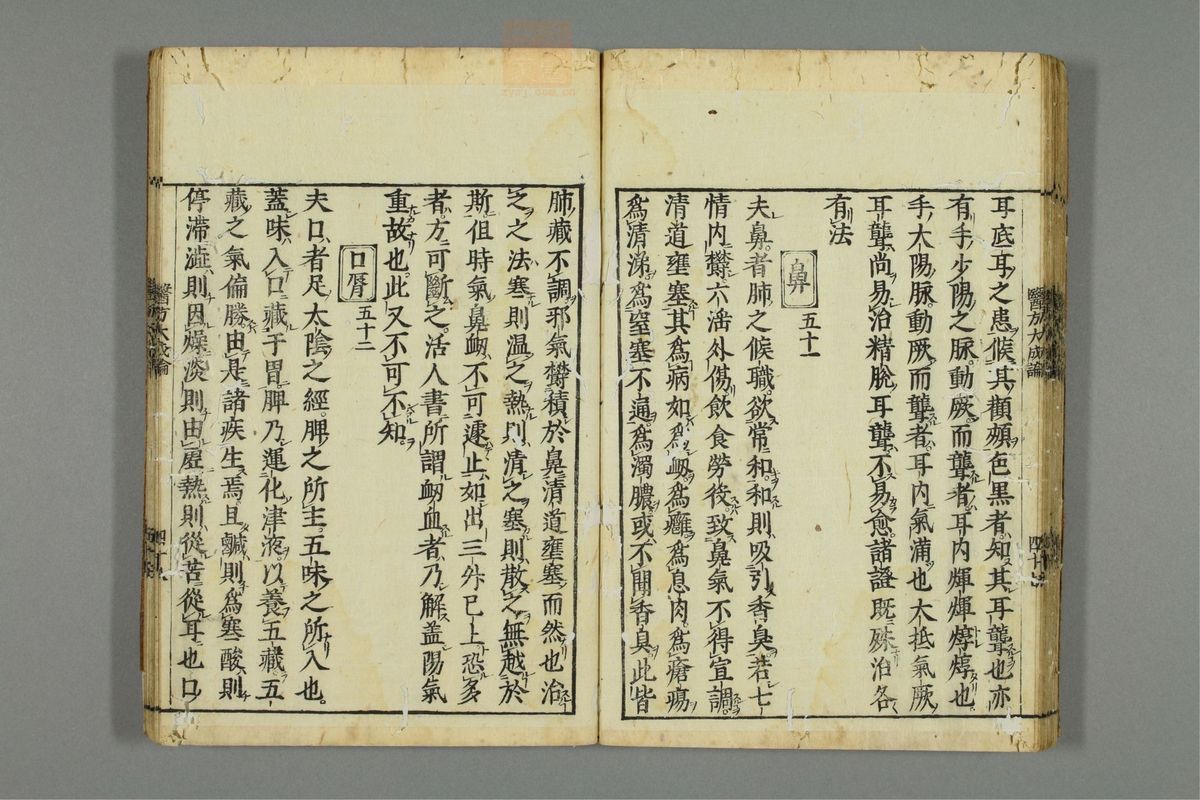 耳底耳之患候其顴頰色黑者知其耳聾也亦
有手少陽之脉動厥而聾者耳内煇煇焞焞也
手太陽脉動厥而聾者耳内氣滿也大抵氣厥
耳聾尚易治精脫耳聾不易愈諸證既殊治各
有法
鼻 五十一
夫鼻者肺之候職欲常和和則吸引香臭若七
情内欝六滛外傷飲食勞役致鼻氣不得宣調
清道壅塞其爲病如爲衂爲癰爲息肉爲瘡瘍
爲清涕爲窒塞不通爲濁膿或不聞香臭此皆
肺藏不調邪氣欝積於鼻清道壅塞而然也治
之之法寒則温之熱則清之塞則散之無越於
斯但時氣鼻衂不可遽止如出三升巳上恐多
者方可斷之活人書所謂衂血者乃解盖陽氣
重故也此又不可不知
口唇 五十二
夫口者足太陰之經脾之所主五味之所入也
蓋味入口藏于胃脾乃運化津液以養五藏五
藏之氣偏勝由是諸疾生焉且鹹則爲寒酸則
停滯澁則因燥淡則由虚熱則從苦從耳也口
醫方大成論
四十
zysj.com.cn